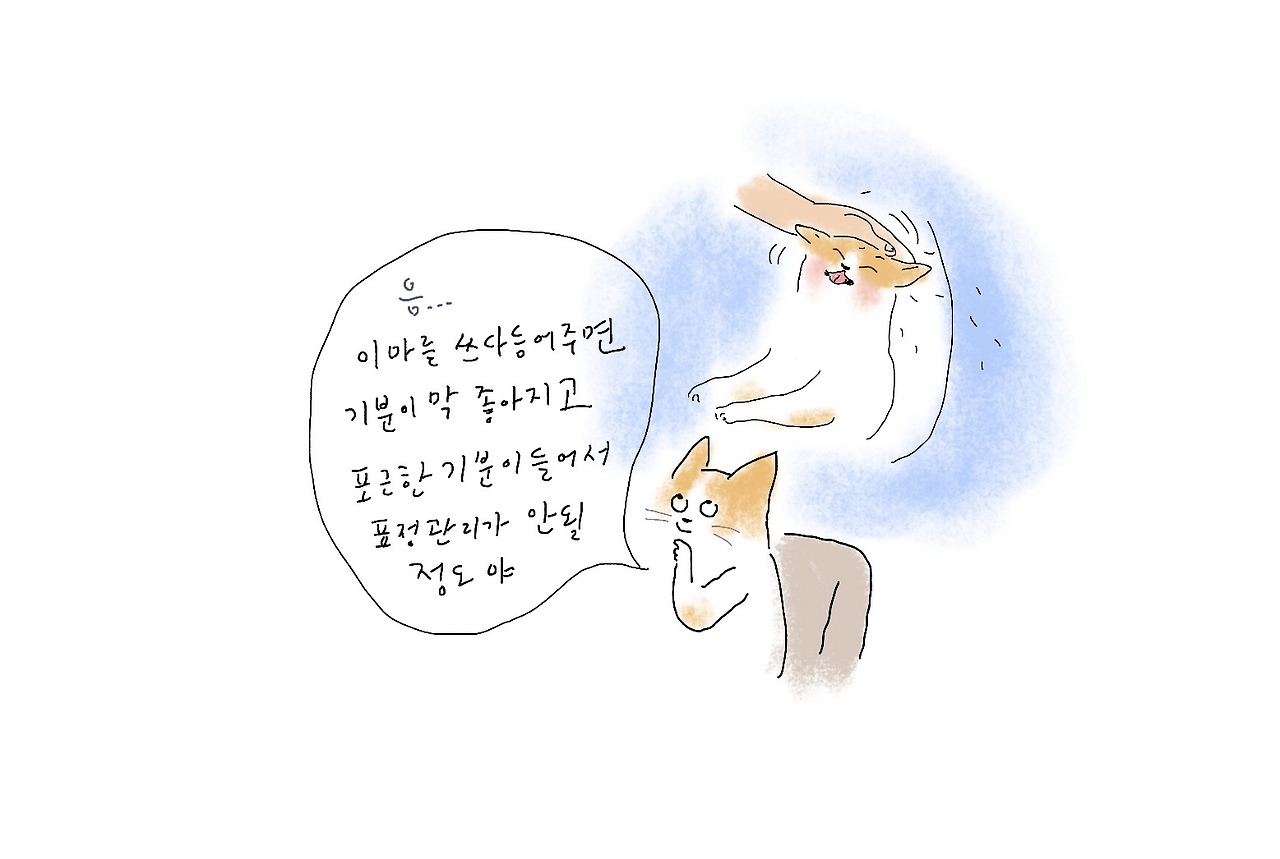 음...
이마를 쓰다듬어주면
기분이 막 좋아지고
포근한 기분이 들어서
표정관리가 안될
정도 야